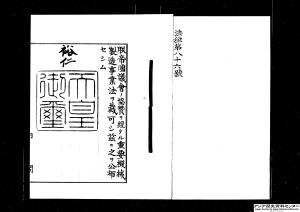 法律第八十六號
朕帝國議會ノ協贊ヲ經タル重要機械
製造事業法ヲ裁可シ茲ニ之ヲ公布
セシム
裕仁
天皇
御璽